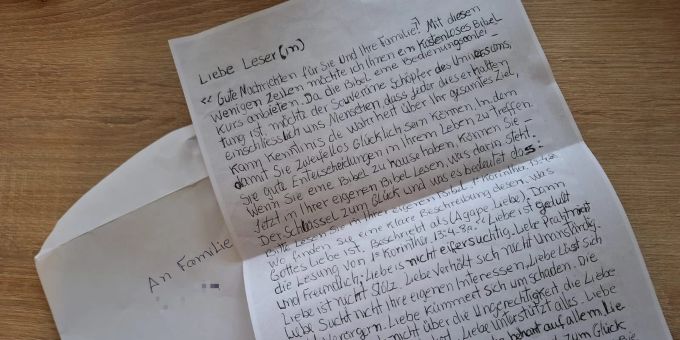 Liebe Leser(in)
<< Gute Nachrichten für Sie und Ihre Familie! Mit diesen
wenigen Zeilen möchte ich Ihnen ein Kostenloses Bibel
Kurs anbieten. Da die Bibel eine Bedienungsanlei-
tung ist, möchte der Souveräne Schöpfer des Universums,
einschliesslich uns Menschen, dass jeder dieser erhalten
kann Kenntnis die Wahrheit über Ihr gesamtes Ziel,
damit Sie zweifellos Glücklich sein können. In dem
Sie gute Entscheidungen in Ihrem Leben zu treffen.
Wenn Sie eine Bibel zu hause haben, können Sie
Jetzt in Ihrer eigenen Bibel Lesen, was darin steht.
Der Schlüssel zum Glück und uns es bedeutet das:
Bitte Lesen Sie in Ihrer eigenen Bibel 1° Korinther 13:4-8a
Wo finden Sie eine klare Beschreibung dessen, was
Gottes Liebe ist. Beschreibt als (Agape Liebe). Dann
die Lesung von 1° Korinther 13:4-8a. <Liebe ist geduldig
und Freundlich; Liebe ist nicht eifersüchtig, Liebe prahlt nicht
Liebe ist nicht Stolz. Liebe verhält sich nicht unanständig.
Liebe Sucht nicht Ihre eigenen Interessen. Liebe lässt sich
verärgern. Liebe kümmert sich um schaden. Die
nicht über die Ungerechtigkeit die Liebe
Liebe unterstützt alles. Liebe
beharrt auf allem. Lie
zum Glück
An Familie